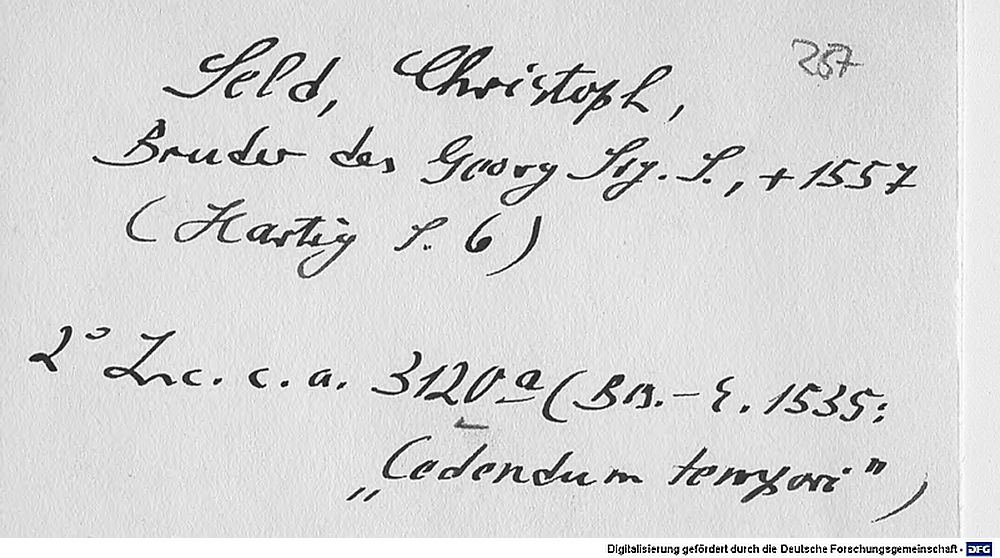 267
Seld, Christoph,
Bruder des Georg Sig. S., + 1557
(Hartig S. 6)
2° Inc. c. a. 3120ª (BB. – E. 1535:
„Cedendum tempori")
Digitalisierung gefördert durch die Deutsche Forschungsgemeinschaft - DFG